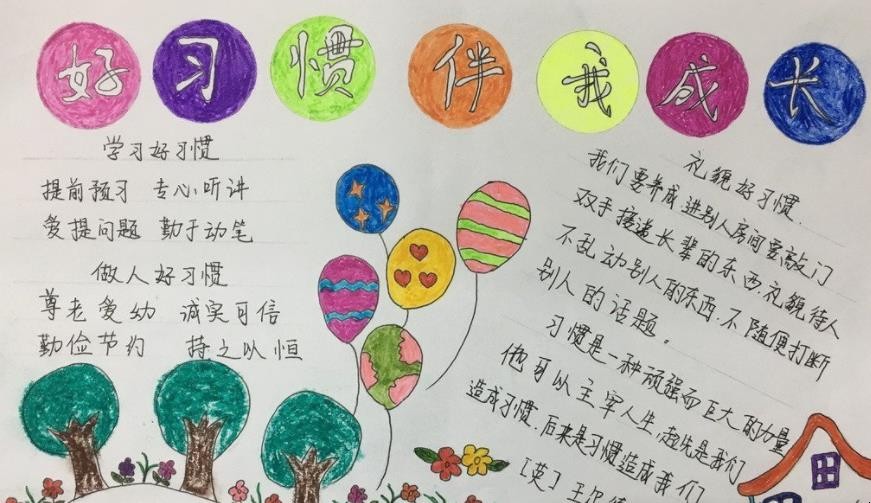 好习惯伴我成长
学习好习惯
提前预习 专心听讲
爱提问题 勤于动笔
做人好习惯
尊老爱幼 诚实可信
勤俭节约 持之以恒
礼貌好习惯.
我们要养成进别人房间要敲门
双手接递长辈的东西.礼貌待人
不乱动别人的东西.不随便打断
别人的话题。
习惯是一种顽强而巨大的力量
他可以主宰人生,起先是我们
造成习惯.后来是习惯造成我们
[英]王尔德